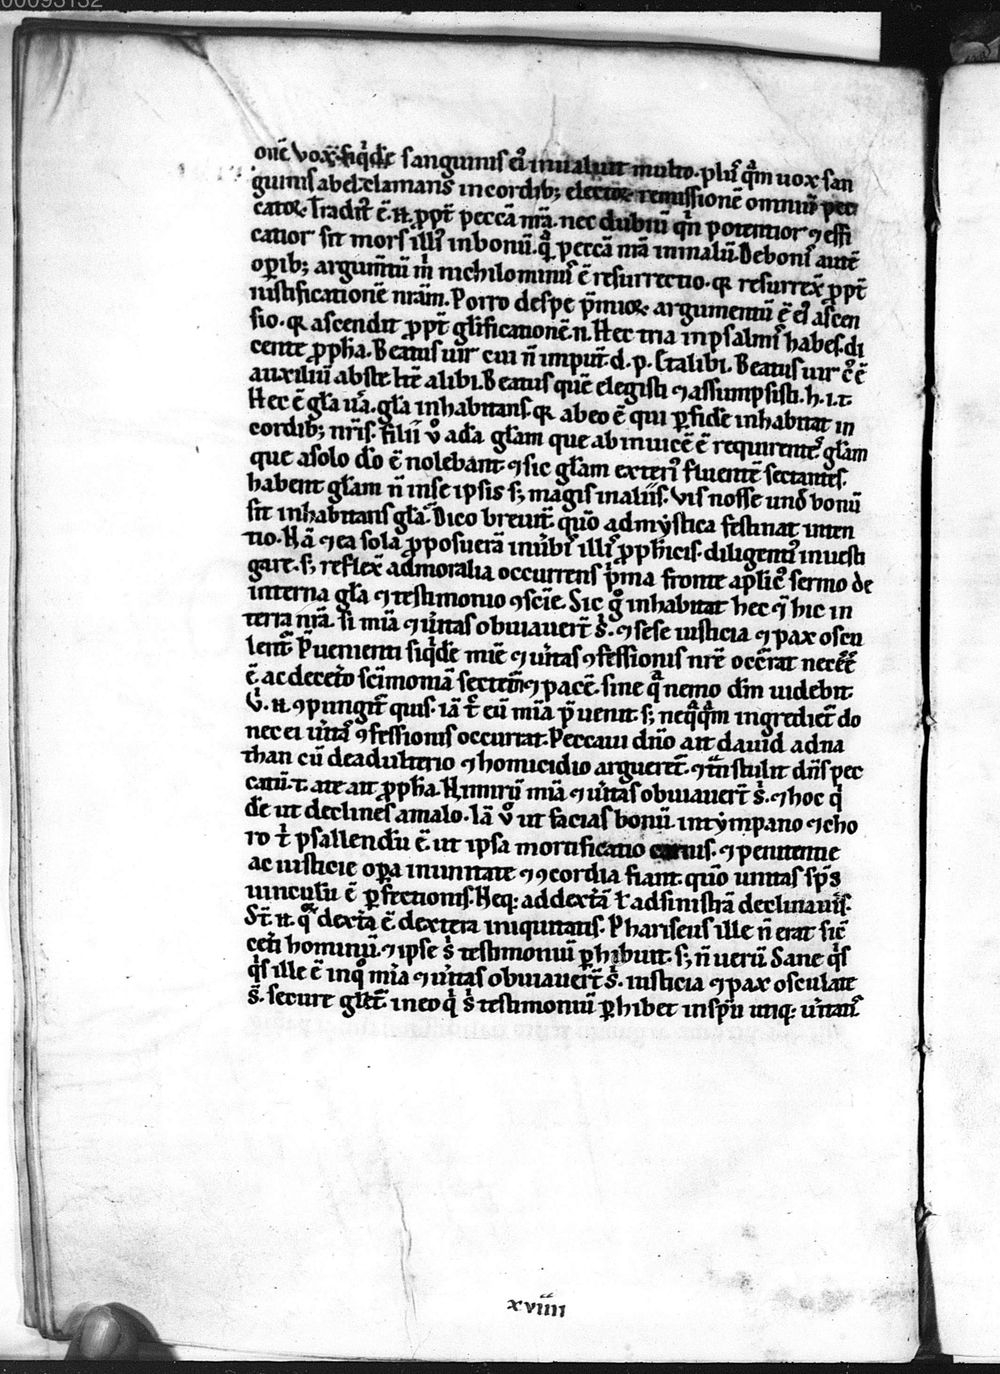 00095132
onē vox siq̇dē sanguinis ei᷒ inualuit multo. pli᷒ q̄m uox san
guinis abel clamans in cordib; electoꝝ remissionē omniū pec
catoꝝ. Tradit᷒ ē .n. ꝓpt̄ peccā nr̄a. nec dubiū qn̄ potentior ⁊ effi
catior sit mors illi᷒ in bonū. q̄ peccā nr̄a in malū. De bonis autē
oꝑib; argum̄tū nichilomin᷒ ē resurrectio. qꝛ resurrex̄ ꝓpt̄
iustificationē nrām. Porro de spe p̄mioꝝ argumentū ē ei᷒ ascen
sio. qꝛ ascendit ꝓpt̄ gl̄ificationē .n. Hec tria in psalmis habes. di
cente ꝓph̄a. Beatus uir cui n̄ imput̄. d. p. Et alibi. Beatus uir c᷒ ē
auxiliū abs te. Itē alibi. Beatus quē elegisti ⁊ assumpsisti. h. i. t.
Hec ē gl̄a ua̅. gl̄a inhabitans. qꝛ ab eo ē qui ꝑ fidē inhabitat in
cordib; nr̄is. Filii ů adā gl̄am que ab inuicē ē requirentes gl̄am
que a solo dō ē nolebant ⁊ sic gl̄am exteri᷒ fluentē sectantes.
habent gl̄am n̄ in se ipsis s; magis in aliis. Vis nosse und̄ bonū
sit inhabitans gl̄a. Dico breuit̄. quō ad mẏstica festinat inten
tio. Nā ⁊ ea sola ꝓposuerā in ꝟbis illis ꝓph̄icis. diligenti᷒ inuesti
gare. s; reflex̄ ad moralia occurrens p̄ma fronte ap̄lic᷒ sermo de
interna gl̄a ⁊ testimonio ꝯscīe. Sic g̊ inhabitat hec ⁊ hic in
terra nr̄a. si mīa ⁊ ůitas obuiauer̄t s̄. ⁊ sese iusticia ⁊ pax oscu
lent̄. P̄uenienti siq̇dē mīe ⁊ ůitas ꝯfessionis nr̄e occ̄rat necēē
ē. ac decet᷒o scīmoniā sectem᷒ ⁊ pacē. sine q̄ nemo dm̄ uidebit.
.n. ꝯpungit̄ quis. iā t̄ cū mīa p̄uenit. s; neq̄q̄m ingrediet̄ do
nec ei ůitas ꝯfessionis occurrat. Peccaui dn̄o ait dauid ad na
than cū de adulterio ⁊ homicidio argueret̄. ⁊ tn̄stulit dn̄s pec
catū. t. a te ait ꝓph̄a. Nimirū mīa ⁊ ůitas obuiauer̄t s̄. ⁊ hoc q̇
dē ut declines a malo. Iā ů ut facias bonū. in tẏmpano ⁊ cho
ro t̄ psallendū ē. ut ipsa mortificatio carnis. ⁊ penitentie
ac iusticie oꝑa in unitate ⁊ ꝯcordia fiant. quō unitas sp̄s
uinculū ē ꝑfectionis. Neq; ad dext̄ā ł ad sinistrā declinauis.
St̄ .n. q̄ dext̄a ē dextera iniquitatis. Phariseus ille n̄ erat sic̄
cet̄i hominū. ⁊ ipse s̄ testimoniū ꝑhibuit. s; n̄ uerū. Sane q̇s
q̇s ille ē in q̊ mīa ⁊ ůitas obuiauer̄t s̄. iusticia ⁊ pax osculate
s̄. secure gl̄et̄ in eo q̇ s̄ testimoniū ꝑhibet in sp̄u unq; ůitatis
xviiii